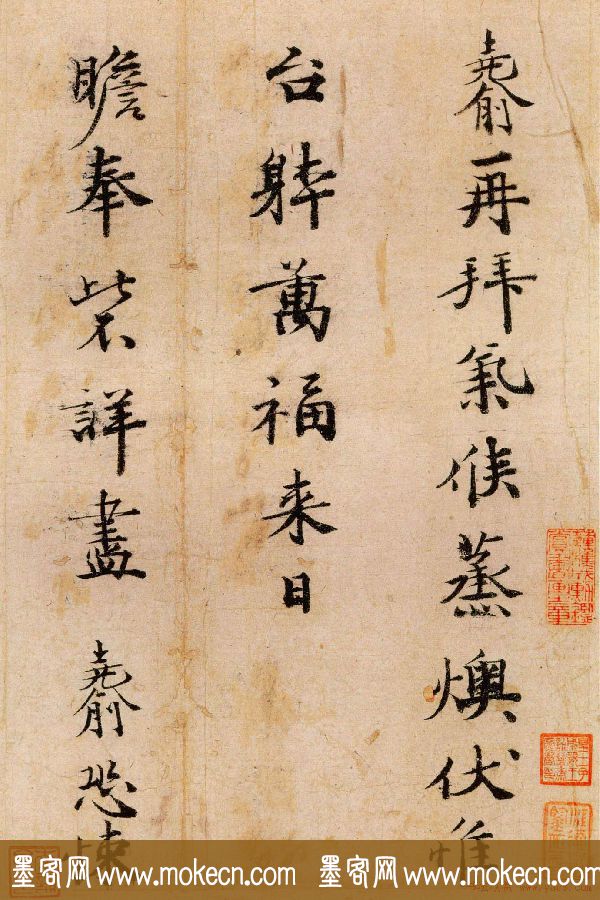 堯俞再拜氣候蒸燠伏惟
台體萬福来日
瞻奉此不詳盡 堯俞恐悚
墨客网 www.mokecn.com 墨客网 www.mokecn.com